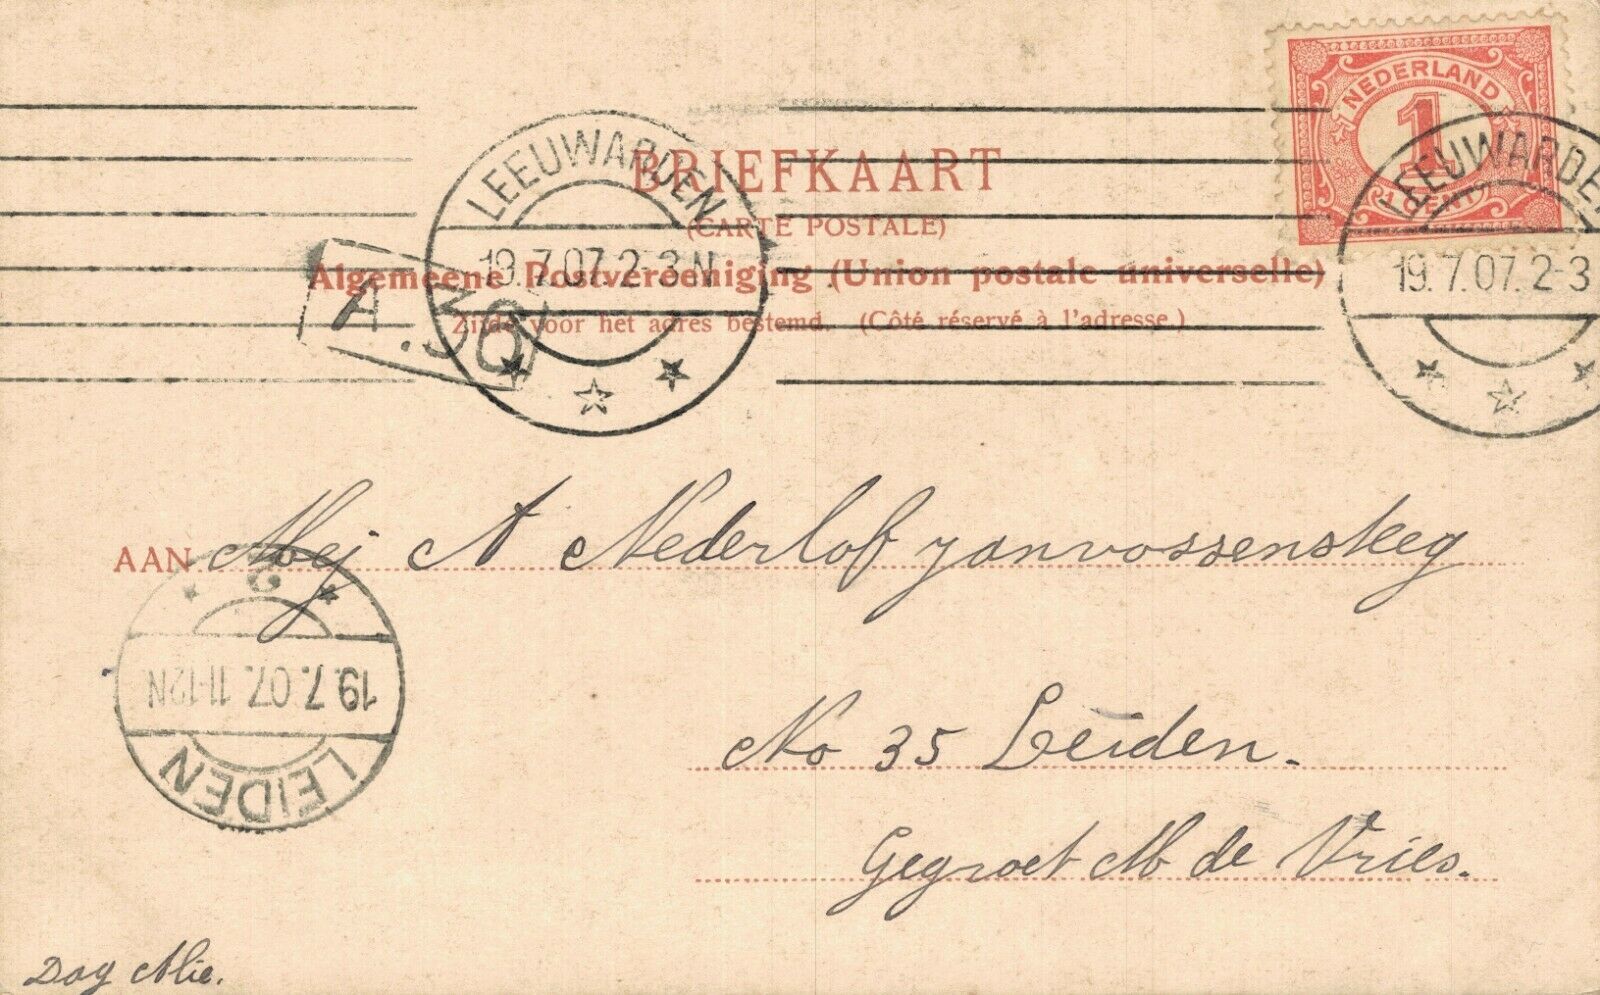 NEDERLAND
1
1 CENT
LEEUWARDEN
19.7.07.2-3N
LEEUWARDEN
19.7.07.2-3
BRIEFKAART
(CARTE POSTALE)
Algemeene Postvereeniging (Union postale universelle)
Zijde voor het adres bestemd. (Côté réservé à l'adresse.)
A.
AAN Mej A Nederlof Janvossensteeg
2
19.7.07.11-12N
LEIDEN
No 35 Leiden.
Gegroet M de Vries.
Dag Alie.